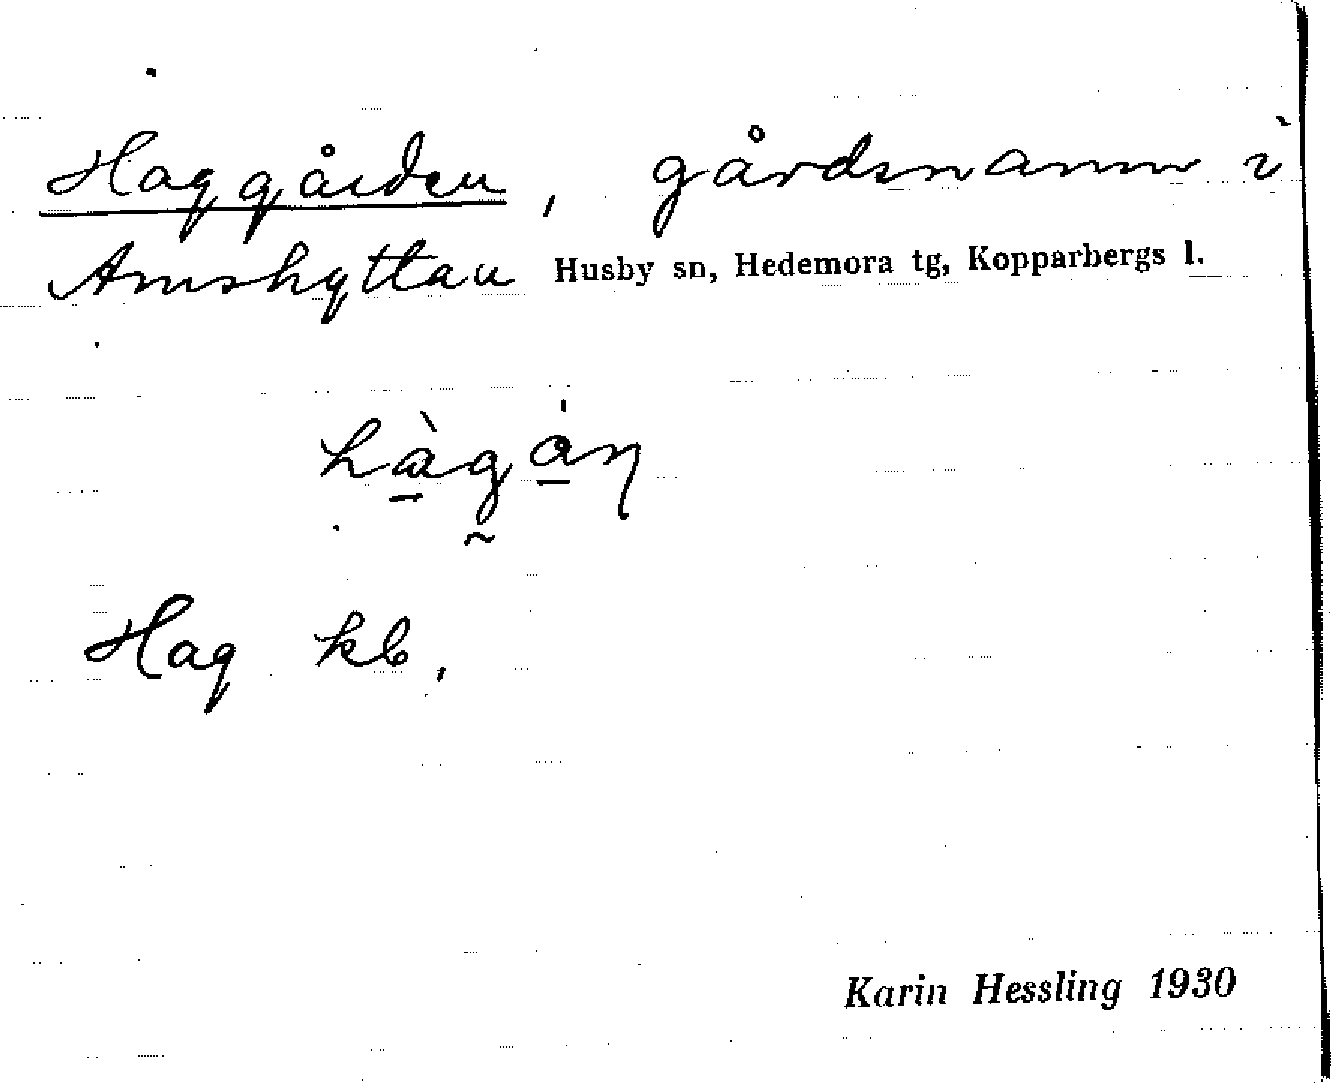 Haggården, gårdsnamn i
Amshyttan Husby sn, Hedemora tg, Kopparbergs l.
Hag kb.
Karin Hessling 1930